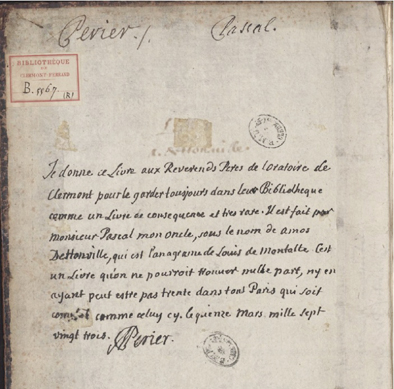 Perier./. Pascal.
BIBLIOTHÈQUE
CLERMONT-FERRAND
B. 5567 (R)
A. Dettonuile
Je donne ce Livre aux Reverends Peres de l'oratoire de
Clermont pour le garder tousjours dans leur Bibliotheque
comme un Livre de consequence et tres rare. Il est fait par
monsieur Pascal mon oncle, sous le nom de amos
Dettonville, qui est l'anagrame de Louis de montalte C'est
un Livre qu'on ne pourroit trouver nulle part, ny en
ayant peut estre pas trente dans tous Paris qui soit
complet comme celuy cy. le quinze Mars. mille sept
vingt trois. Perier.